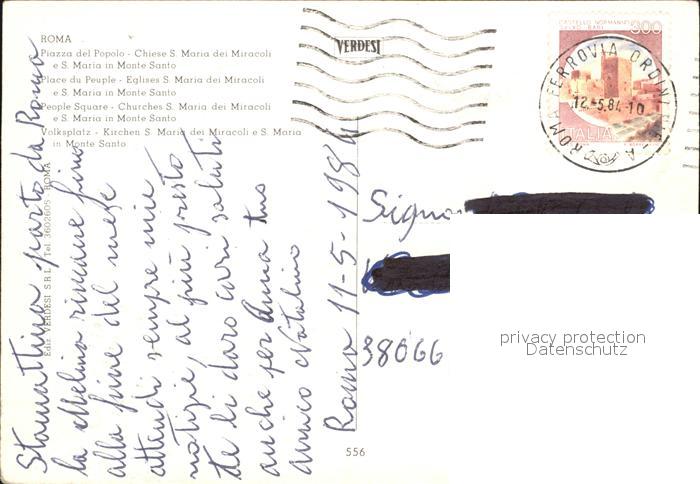 ROMA
Piazza del Popolo - Chiese S. Maria dei Miracoli
e S. Maria in Monte Santo
Place du Peuple - Eglises S. Maria dei Miracoli
e S. Maria in Monte Santo
People Square - Churches S. Maria dei Miracoli
e S. Maria in Monte Santo
Volksplatz - Kirchen S. Maria dei Miracoli e S. Maria
in Monte Santo
Ediz. VERDESI S.R.L. Tel. 3602605 - ROMA
VERDESI
CASTELLO NORMANNO
SVEVO - BARI
300
ITALIA
ROMA FERROVIA ORDINARIE A
12.-5.84-10
Roma 11-5-1984
Stamattina parto da Roma
la Melina rimane fino
alla fine del mese
attendi sempre mie
notizie, al più presto
te li daro cari saluti
anche per Anna tuo
amico Natalino
Signor
38066
privacy protection
Datenschutz
556